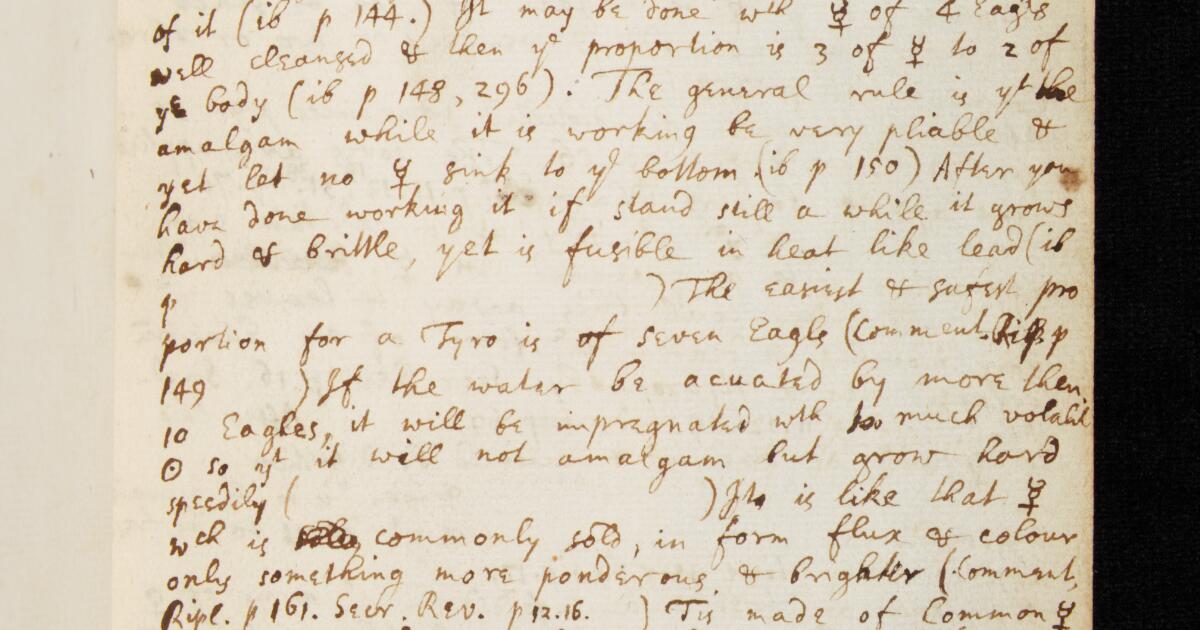 of it (ib p 144.) It may be done wth ☿ of 4 Eagls
well cleansed & then ye proportion is 3 of ☿ to 2 of
ye body (ib p 148, 296). The general rule is yt the
amalgam while it is working be very pliable &
yet let no ☿ sink to ye bottom (ib p 150) After you
have done working it if stand still a while it grows
hard & brittle, yet is fusible in heat like lead (ib
p ) The easiest & safest pro
portion for a Tyro is of seven Eagls (Comment. Ripl. p
149 ) If the water be acuated by more then
10 Eagles, it will be impregnated wth too much volatil
☉ so yt it will not amalgam but grow hard
speedily ( ) Its is like that ☿
wch is commonly sold, in form flux & colour
only something more ponderous & brighter (Comment.
Ripl. p 161. Secr. Rev. p 12.16. ) Tis made of Common ☿